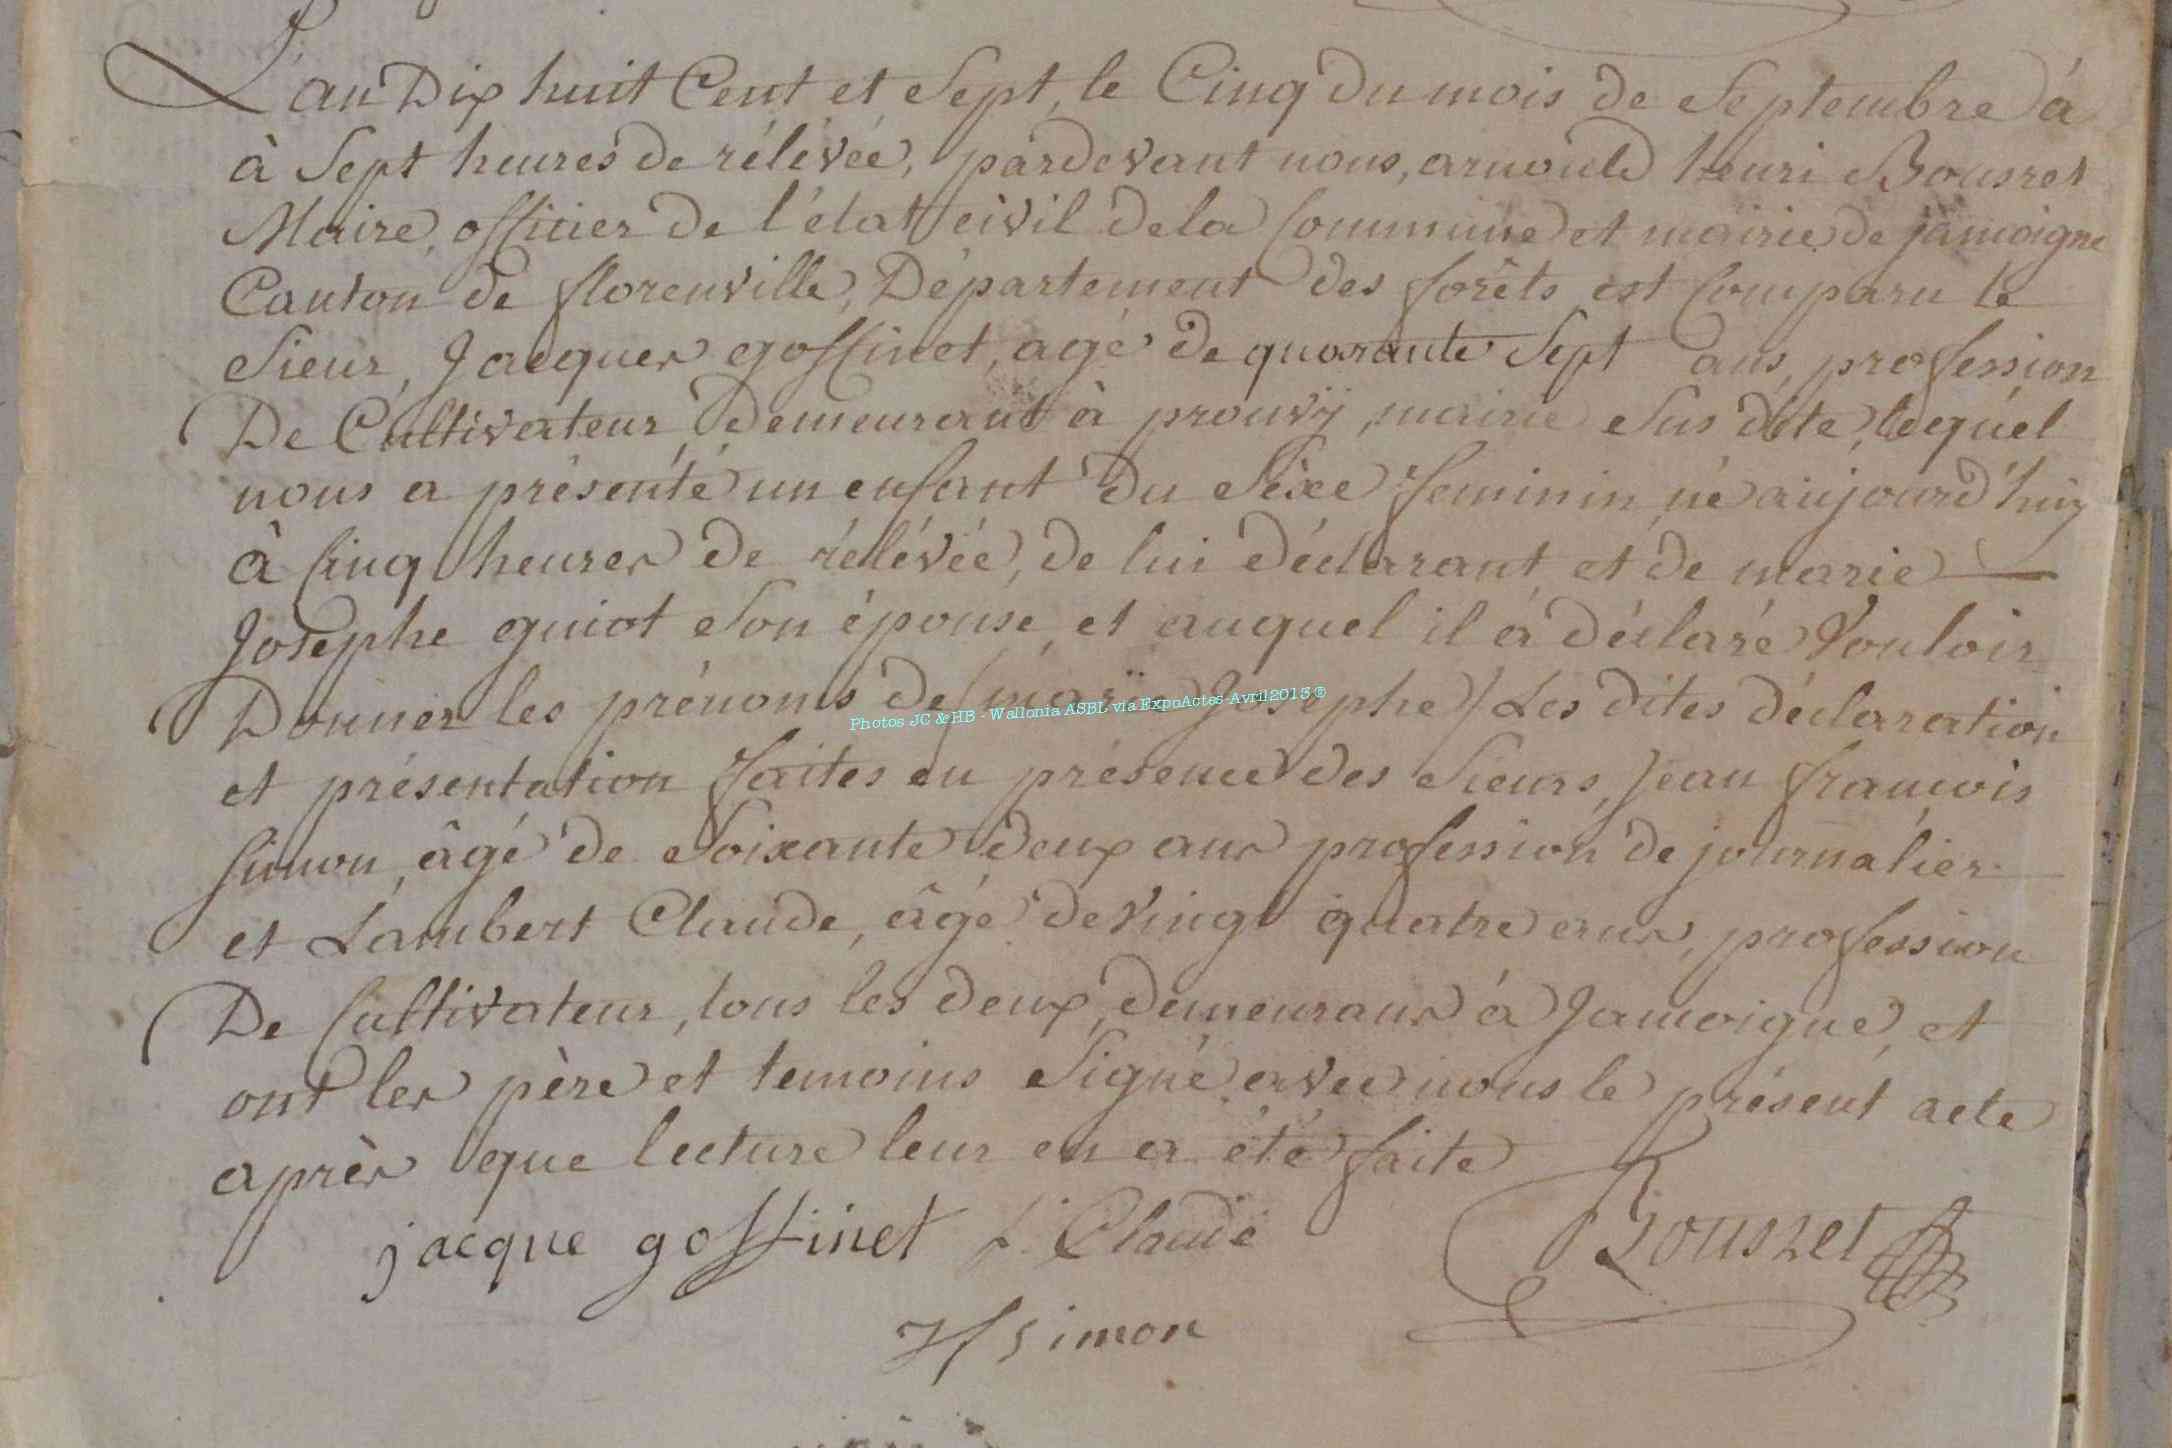 L'an Dix huit Cent et Sept, le Cinq Du mois de Septembre à
à Sept heures de rélévée, pardevant nous, arnould henri Bousret
Maire, officier de l'état civil de la Commune et mairie de jamoigne
Canton de florenville, Département des forêts est Comparu le
Sieur, Jacques goffinet, agé de quarante Sept ans, profession
De Cultivateur, demeurant à prouvÿ, mairie Sus dite, lequél
nous a présenté un enfant Du Séxe feminin, né aujourd'huy
à Cinq heures de rélévée, de lui déclarant et de marie
Josephe guiot Son épouse, et auquel il à déclaré Vouloir
Donner les prénoms de (marïe Josephe) Les dites déclaration
et présentation faites en présence des Sieurs, Jean françois
Simon, âgé de Soixante deux ans profession de journalier
et Lambert Claude, âgé de Vingt quatre ans, profession
De Cultivateur, tous les deux demeurans à Jamoigne, et
ont les père et temoins Signé avec nous le présent acte
après que lecture leur en a été faite
jacque goffinet L. Claude Bousret
Jf simon
Photos JC & HB - Wallonia ASBL via ExpoActes-Avril2013®